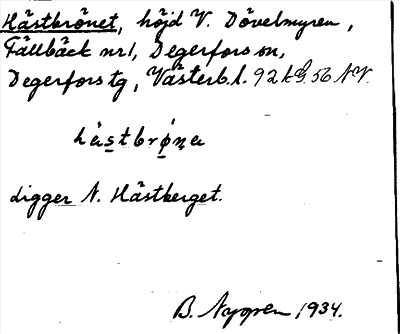 Hästbrönet, höjd V. Dövelmyren,
Fällbäck nr 1, Degerfors sn,
Degerfors tg, Västerb. l.
hästbrøna
ligger N. Hästberget.
B. Nygren 1934.